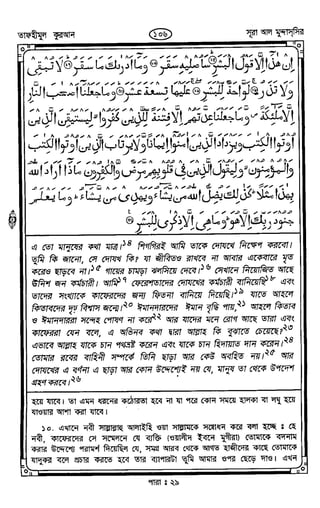 তাফহীমুল কুরআন ১০৬ সূরা আল মুদ্দাস্‌সির
اِنْ هٰذَآ اِلَّا قَوْلُ الْبَشَرِ ۞ سَاُصْلِيْهِ سَقَرَ ۞ وَمَآ اَدْرٰىكَ مَا سَقَرُ ۞ لَا تُبْقِيْ
وَلَا تَذَرُ ۞ لَوَّاحَةٌ لِّلْبَشَرِ ۞ عَلَيْهَا تِسْعَةَ عَشَرَ ۞ وَمَا جَعَلْنَآ اَصْحٰبَ النَّارِ
اِلَّا مَلٰٓئِكَةً ۪ وَّمَا جَعَلْنَا عِدَّتَهُمْ اِلَّا فِتْنَةً لِّلَّذِيْنَ كَفَرُوْا ۙ لِيَسْتَيْقِنَ الَّذِيْنَ
اُوْتُوا الْكِتٰبَ وَيَزْدَادَ الَّذِيْنَ اٰمَنُوْٓا اِيْمَانًا وَّلَا يَرْتَابَ الَّذِيْنَ اُوْتُوا الْكِتٰبَ
وَالْمُؤْمِنُوْنَ ۙ وَلِيَقُوْلَ الَّذِيْنَ فِيْ قُلُوْبِهِمْ مَّرَضٌ وَّالْكٰفِرُوْنَ مَاذَآ اَرَادَ اللّٰهُ
بِهٰذَا مَثَلًا ؕ كَذٰلِكَ يُضِلُّ اللّٰهُ مَنْ يَّشَآءُ وَيَهْدِيْ مَنْ يَّشَآءُ ؕ وَمَا يَعْلَمُ
جُنُوْدَ رَبِّكَ اِلَّا هُوَ ؕ وَمَا هِيَ اِلَّا ذِكْرٰى لِلْبَشَرِ ۞
এ তো মানুষের কথা মাত্র।১৪ শিগগিরই আমি তাকে দোযখে নিক্ষেপ করবো।
তুমি কি জানো, সে দোযখ কি? যা জীবিতও রাখবে না আবার একেবারে মৃত
করেও ছাড়বে না।১৫ গায়ের চামড়া ঝলসিয়ে দেবে।১৬ সেখানে নিয়োজিত আছে
উনিশ জন কর্মচারী। আমি১৭ ফেরেশতাদের দোযখের কর্মচারী বানিয়েছি১৮ এবং
তাদের সংখ্যাকে কাফেরদের জন্য ফিতনা বানিয়ে দিয়েছি।১৯ যাতে আহলে
কিতাবদের দৃঢ় বিশ্বাস জন্মে।২০ ঈমানদারদের ঈমান বৃদ্ধি পায়,২১ আহলে কিতাব
ও ঈমানদাররা সন্দেহ পোষণ না করে২২ আর যাদের মনে রোগ আছে তারা এবং
কাফেররা যেন বলে, এ অভিনব কথা দ্বারা আল্লাহ কি বুঝাতে চেয়েছে?২৩
এভাবে আল্লাহ যাকে চান পথভ্রষ্ট করেন এবং যাকে চান হিদায়াত দান করেন।২৪
তোমার রবের বাহিনী সম্পর্কে তিনি ছাড়া আর কেউ অবহিত নয়।২৫ আর
দোযখের এ বর্ণনা এ ছাড়া আর কোন উদ্দেশ্যেই নয় যে, মানুষ তা থেকে উপদেশ
গ্রহণ করবে।২৬
হয়ে যাবে। তা এমন ধরনের কঠোরতা হবে না যা পরে কোন সময়ে হালকা বা লঘু হয়ে
যাওয়ার আশা করা যাবে।
১০. এখানে নবী সাল্লাল্লাহু আলাইহি ওয়া সাল্লামকে সম্বোধন করে বলা হচ্ছে : হে
নবী, কাফেরদের সে সম্মেলনে যে ব্যক্তি (ওয়ালীদ ইবনে মুগীরা) তোমাকে বদনাম
করার উদ্দেশ্যে পরামর্শ দিয়েছিল যে, সমগ্র আরব থেকে আগত হাজীদের কাছে তোমাকে
যাদুকর বলে প্রচার করতে হবে তার ব্যাপারটা তুমি আমার ওপর ছেড়ে দাও। এখন
পারা : ২৯